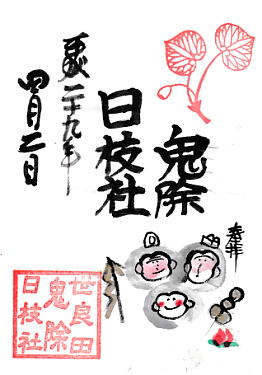 奉拝
鬼除
日枝社
平成二十九年
四月二日
世良田
鬼除
日枝社